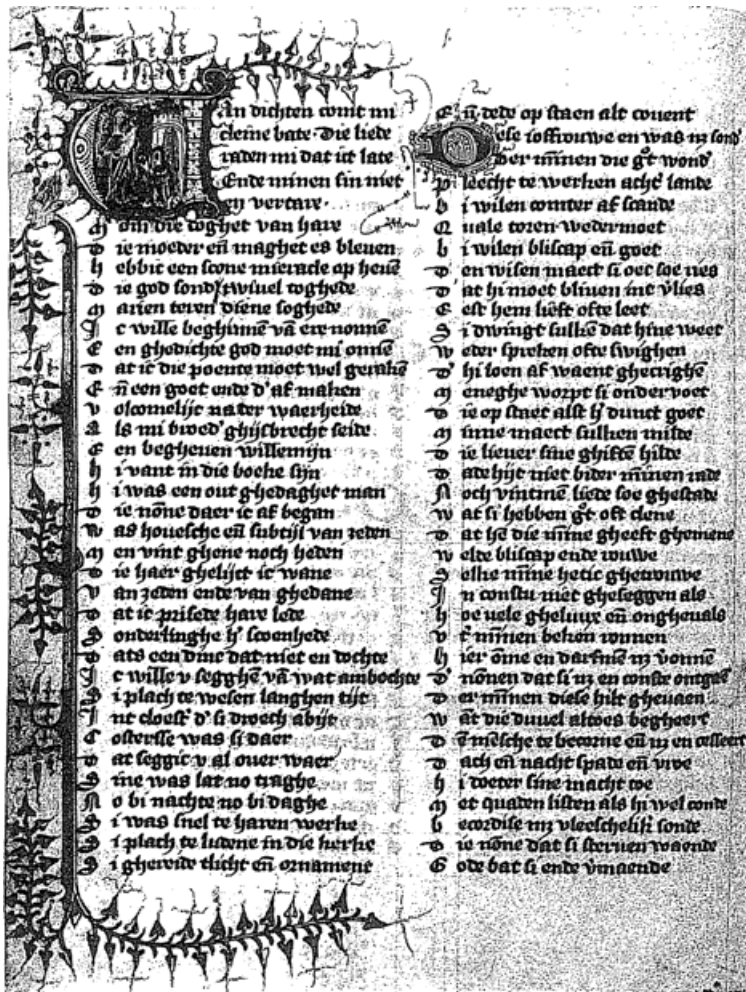 Van dichten comt mi
cleine bate · Die liede
raden mi dat ict late
Ende minen sin niet
en vertare ·
M om die doghet van hare
D ie moeder eñ maghet es bleuen
H ebbic een scone mieracle op heuē
D ie god sond' twiuel toghede
M arien teren diene soghede
I c wille beghinnē vā ere nonnē
E en ghedichte god moet mi onnē
D at ic die poente moet wel gerakē
E ñ een goet ende d' af maken
V olcomelijc na ter waerheide
A ls mi broed' ghijsbrecht seide
E en begheuen willemijn
H i vant in die boeke sijn
H i was een out ghedaghet man
D ie nōne daer ic af began
W as houesche eñ subtijl van zeden
M en vint ghene noch heden
D ie haer ghelijct ic wane
V an zeden ende van ghedane
D at ic prisede hare lede
S onderlinghe h' scoenhede
D ats een dinc dat niet en dochte
I c wille v segghē vā wat ambochte
S i plach te wesen langhen tijt
I nt cloest' d' si droech abijt
C osterse was si daer
D at seggic v al ouer waer
S ine was lat no traghe
N o bi nachte no bi daghe
S i was snel te haren werke
S i plach te ludene in die kerke
S i ghereide tlicht eñ ornament
E ñ dede op staen alt couent
Dese ioffrouwe en was nz sond'
Der mīnen die g't wond'
P leecht te werken acht' lande
B i wilen comter af scande
Q uale toren wedermoet
B i wilen bliscap eñ goet
D en wisen maect si oec soe ries
D at hi moet bliuen int v'lies
E est hem lieft ofte leet
S i dwingt sulken dat hine weet
W eder spreken ofte swighen
D' hi loen af waent ghecrighē
M eneghe worpt si onder voet
D ie op staet alst h' dunct goet
M inne maect sulken milde
D ie liever sine ghiften hilde
D ade hijt niet bider mīnen rade
N och vintmē liede soe ghestade
W at si hebben g't oft clene
D at hē die mīne gheeft ghemene
W elde bliscap ende rouwe
S elke mīne hetic ghetrouwe
I n constu niet gheseggen als
H oe vele gheluux eñ ongheuals
V t' mīnen beken ronnen
H ier ōme en darfmē nz v'onnē
D' nōnen dat si nz en conste ontgaē
D er mīnen diese hilt gheuaen
W ant die duuel altoes begheert
D ē mēsche te becorne eñ nz en cesseert
D ach eñ nacht spade eñ vroe
H i doeter sine macht toe
M et quaden listen als hi wel conde
B ecordise mz vleescheliker sonde
D ie nōne dat si steruen waende
G ode bat si ende v'maende